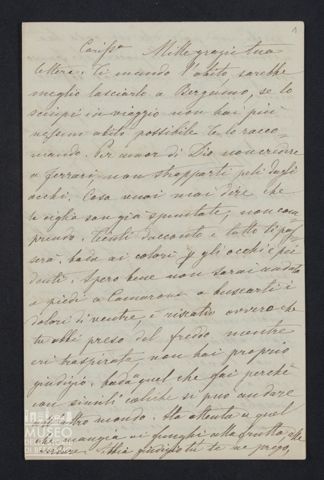 1
Cariss.a Mille grazie tua
lettera. Ti mando l'abito, sarebbe
meglio lasciarlo a Bergamo, se lo
sciupi in viaggio non hai più
nessuno abito possibile te lo racco-
mando. Per amor di Dio non credere
a ferrari, non strapparti peli dagli
occhi. Cosa vuoi mai dire che
le ciglia son già spuntate, non com
prendo. Tienti da conto e tutto ti pas
serà, bada ai colori p gli occhi e pei
denti. Spero bene non sarai andata
a piedi a Camerone a buscarti i
dolori di ventre, e
tu abbi preso del freddo mentre
eri traspirata non hai proprio
giudizio, bada a quel che fai perchè
con simili coliche si può andare
all'altro mondo. Sta attenta a quel
che mangia ai funghi alla frutta
giudizio te ne prego,
MUSEO